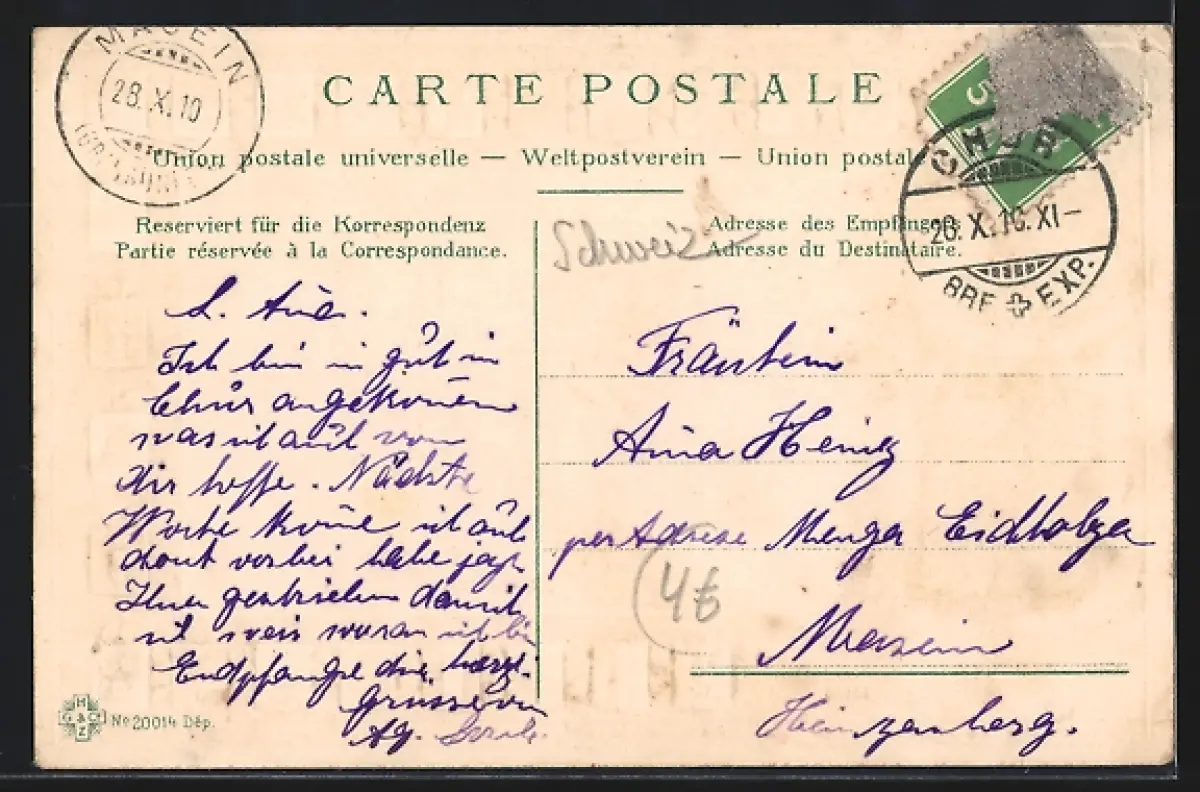 MASEIN
28.X.10
(GRAUBÜNDEN)
CARTE POSTALE
Union postale universelle — Weltpostverein — Union postale
5
CHUR
28.X.10.XI–
BRF. EXP.
Reserviert für die Korrespondenz
Partie réservée à la Correspondance.
Adresse des Empfängers
Adresse du Destinataire.
Schweiz
L. Aña.
Ich bin in gut in
Chur angekom̄en
was ich auch von
dir hoffe. Nächste
Woche kom̄e ich auch
dort vorbei habe
Ihnen geschrieben damit
ich weis woran ich bin
Endpfange die herzl.
Grüsse von
Fräulein
Aña Heinz
per Adresse Menga Eidholzer
Masein
Heinzenberg.
4
H
G & C
Z
No 20014 Dép.